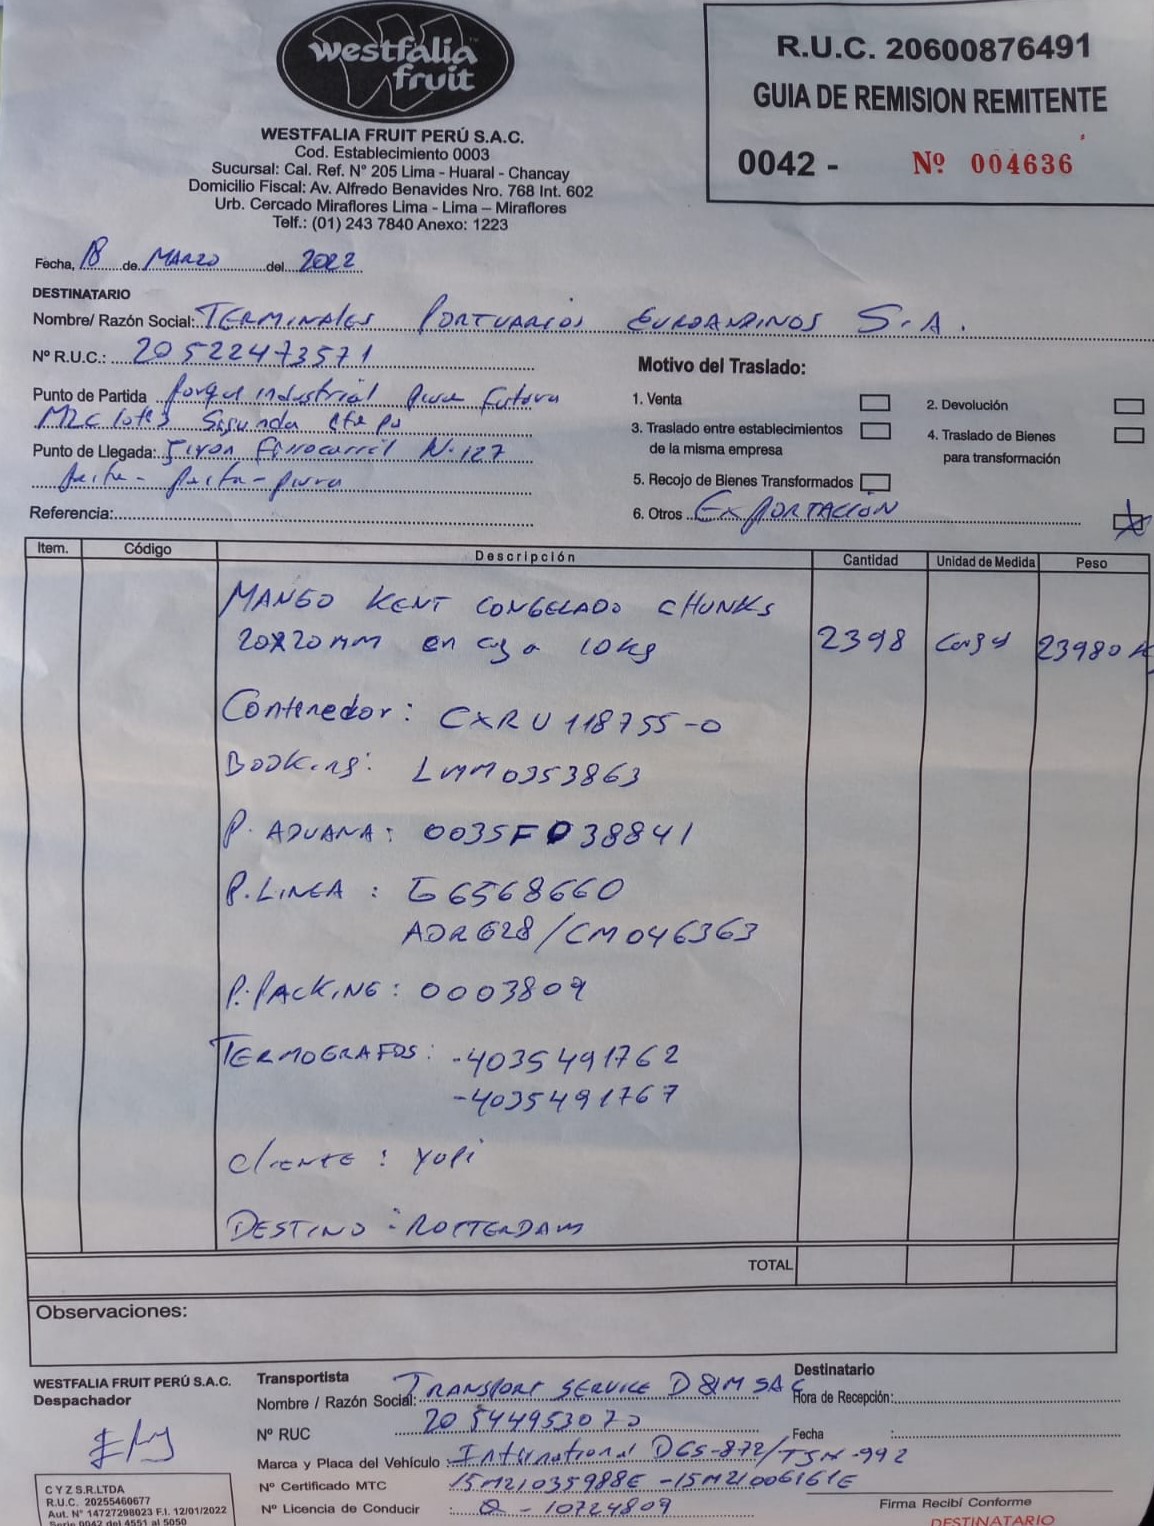 westfalia
fruit
WESTFALIA FRUIT PERÚ S.A.C.
Cod. Establecimiento 0003
Sucursal: Cal. Ref. N° 205 Lima - Huaral - Chancay
Domicilio Fiscal: Av. Alfredo Benavides Nro. 768 Int. 602
Urb. Cercado Miraflores Lima - Lima – Miraflores
Telf.: (01) 243 7840 Anexo: 1223
R.U.C. 20600876491
GUIA DE REMISION REMITENTE
0042 - Nº 004636
Fecha, 18 de MARZO del 2022
DESTINATARIO
Nombre/ Razón Social: TERMINALES PORTUARIOS EUROANDINOS S.A.
Nº R.U.C.: 20522473571
Punto de Partida Parque industrial piura futura
MZC lote3 Segunda etapa
Punto de Llegada: Jiron Ferrocarril N.127
paita - paita - piura
Referencia:
Motivo del Traslado:
1. Venta
2. Devolución
3. Traslado entre establecimientos
de la misma empresa
4. Traslado de Bienes
para transformación
5. Recojo de Bienes Transformados
6. Otros EXPORTACIÓN
Item. Código Descripción Cantidad Unidad de Medida Peso
MANGO KENT CONGELADO CHUNKS
20X20MM en caja 10kg 2398 Cajas 23980 K
Contenedor: CXRU 118755-0
BOOKing: LMM0353863
P. ADUANA: 0035F038841
P. LINEA : G6568660
ADR628/CM046363
P. PACKING: 0003809
TERMOGRAFOS: -4035491762
-4035491767
Cliente : YUPi
DESTINO : ROTTERDAM
TOTAL
Observaciones:
WESTFALIA FRUIT PERÚ S.A.C.
Despachador
Transportista
Nombre / Razón Social: TRANSPORT SERVICE D&M SAC
Nº RUC 20544953070
Marca y Placa del Vehículo : International DCS-872/TSN-992
Nº Certificado MTC 15M21035988E - 15M21006161E
Nº Licencia de Conducir : Q - 10724809
Destinatario
Hora de Recepción:
Fecha :
Firma Recibí Conforme
DESTINATARIO
C Y Z S.R.LTDA
R.U.C. 20255460677
Aut. N° 14727298023 F.I. 12/01/2022
Serie 0042 del 4551 al 5050